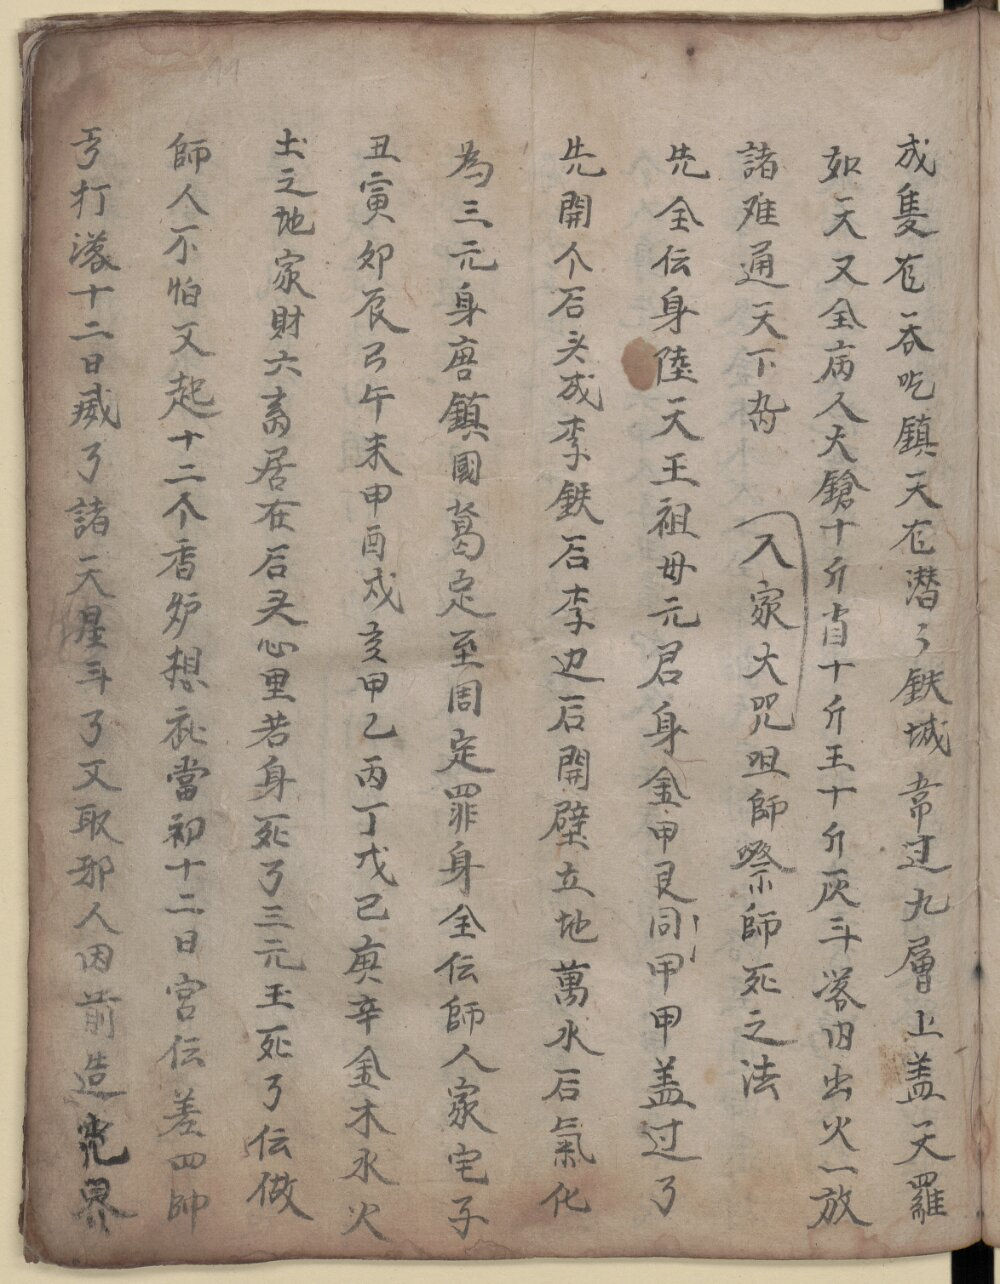 成隻在吞吃鎮天在潜了鉄城常过九層上盖天羅
如天又全病人大鎗十斤十斤王十斤灰斗落内出火一放
諸难通天下為
入家大咒咀師祭師死之法
先全伝身陸天王祖母元君身金甲艮同甲甲盖过了
先開个石头成李鉄石李边石開壁立地萬水石氣化
為三元身唐鎮國葛定至周定罪身全伝師人家宅子
丑寅卯辰巳午未申酉戌亥甲乙丙丁戊己庚辛金木水火
土之地家財六畜居在石头心里若身死了三元王死了伝做
師人不怕又起十二个香炉想當初十二日宮伝差四帥
打十二日威了諸天星斗了又取邪人因前造光界